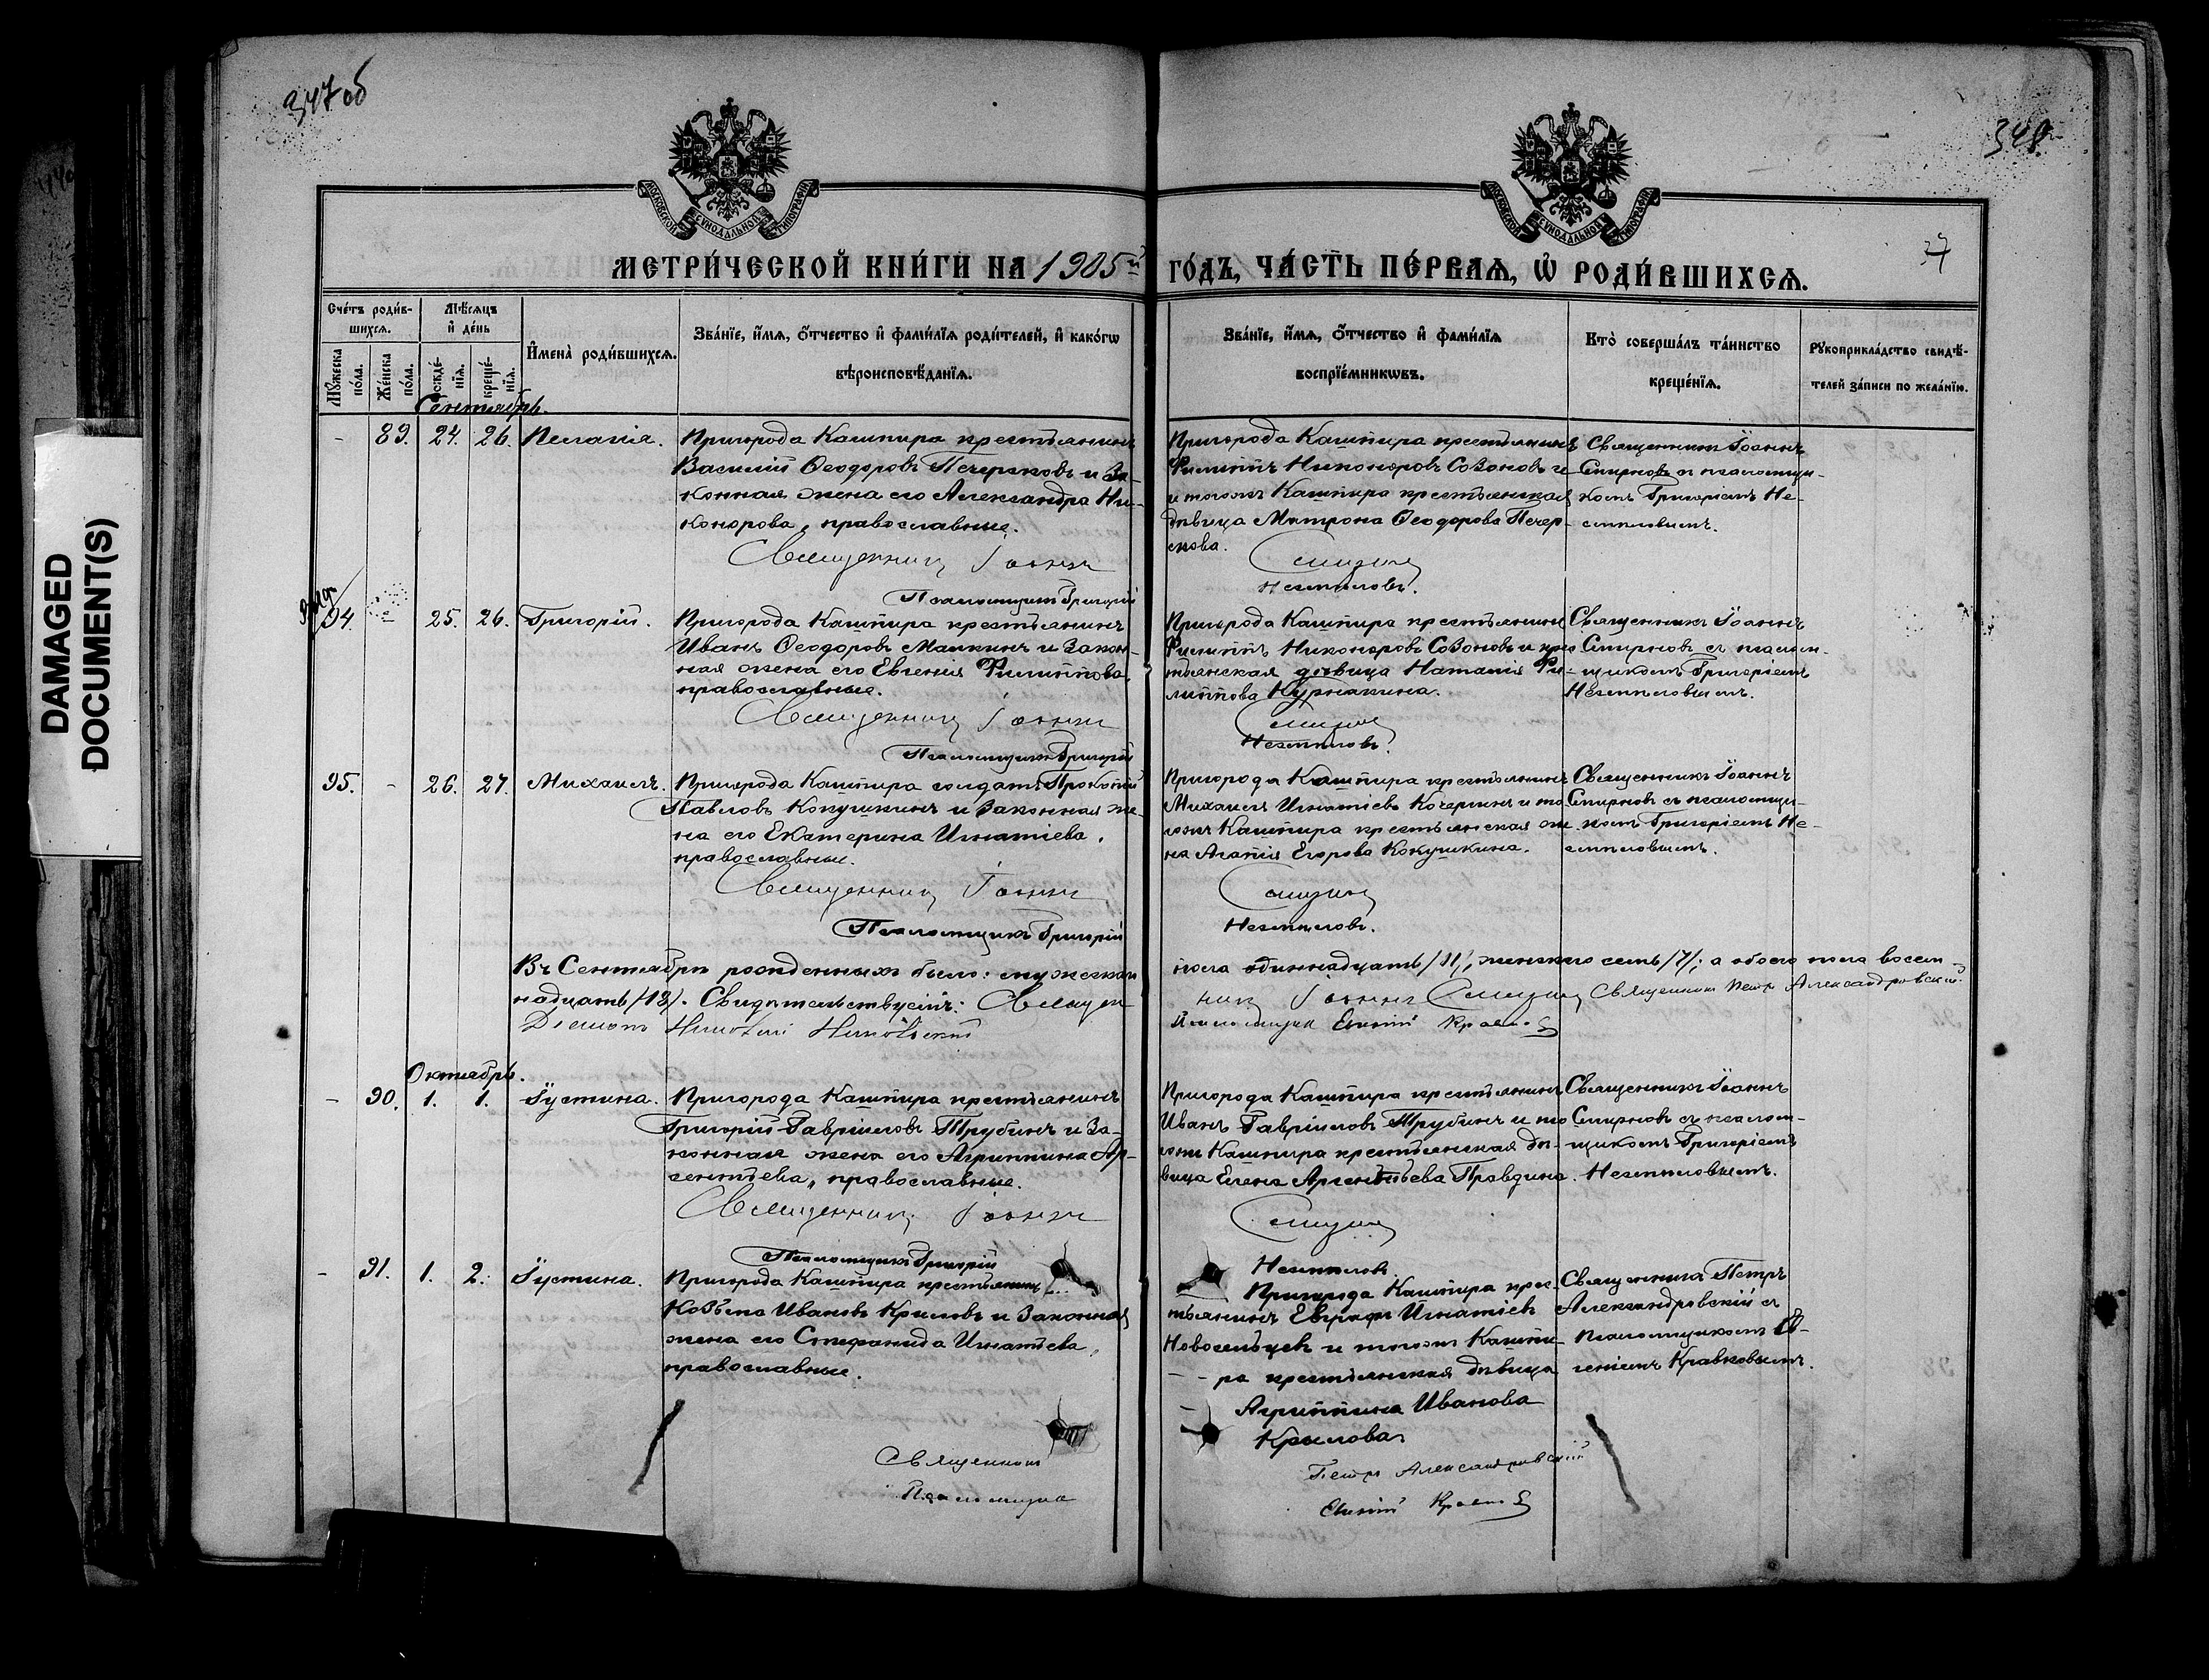 347 об
348
МОСКОВСКОЙ СѴНОДАЛЬНОЙ ТИПОГРАФІИ
МОСКОВСКОЙ СѴНОДАЛЬНОЙ ТИПОГРАФІИ
37
МЕТРИ́ЧЕСКОЙ КНИ́ГИ НА 1905й ГО́ДЪ, ЧА́СТЬ ПЕ́РВАѦ, Ѡ҆ РОДИ́ВШИХСѦ.
Сче́тъ роди́в-
шихсѧ.
Мꙋ́жеска по́ла.
Же́нска по́ла.
Мѣ́сѧцъ
и҆ де́нь
рожде́-
нїѧ.
креще́-
нїѧ.
И҆мена̀ роди́вшихсѧ.
Зва́нїе, и҆́мѧ, ѻ҆́тчество и҆ фами́лїѧ роди́телей, и҆ како́гѡ
вѣроисповѣ́данїѧ.
Зва́нїе, и҆́мѧ, ѻ҆́тчество и҆ фами́лїѧ
воспрїе́мникѡвъ.
Кто̀ соверша́лъ та́инство
креще́нїѧ.
Рꙋкоприкла́дство свидѣ́-
телей за́писи по жела́нїю.
Сентябрь.
- 89. 24. 26. Пелагія.
Пригорода Кашпира крестьянинъ
Василій Ѳеодоровъ Печерсковъ и за-
конная жена его Александра Ни-
конорова, православные.
Священникъ Іоаннъ
Псаломщикъ Григорій
Пригорода Кашпира крестьянинъ
Филиппъ Никоноровъ Созоновъ
и тогожъ Кашпира крестьянская
дѣвица Матрона Ѳеодорова Печер-
скова.
Смирновъ
Незмѣловъ.
Священникъ Іоаннъ
Смирновъ съ псаломщи-
комъ Григоріемъ Не-
змѣловымъ.
94. - 25. 26. Григорій.
Пригорода Кашпира крестьянинъ
Иванъ Ѳеодоровъ Малкинъ и закон-
ная жена его Евгенія Филиппова,
православные.
Священникъ Іоаннъ
Псаломщикъ Григорій
Пригорода Кашпира крестьянинъ
Филиппъ Никоноровъ Созоновъ и крес-
тьянская дѣвица Наталія Фи-
липпова Курнакина.
Смирновъ
Незмѣловъ.
Священникъ Іоаннъ
Смирновъ съ псалом-
щикомъ Григоріемъ
Незмѣловымъ.
95. - 26. 27. Михаилъ.
Пригорода Кашпира солдатъ Прокопій
Павловъ Кокушкинъ и законная же-
на его Екатерина Игнатіева,
православные.
Священникъ Іоаннъ
Псаломщикъ Григорій
Пригорода Кашпира крестьянинъ
Михаилъ Игнатіевъ Кочергинъ и то-
гожъ Кашпира крестьянская же-
на Агапія Егорова Кокушкина.
Смирновъ
Незмѣловъ.
Священникъ Іоаннъ
Смирновъ съ псаломщи-
комъ Григоріемъ Не-
змѣловымъ.
Въ Сентябрѣ рожденныхъ было: мужескаго пола одиннадцать /11/, женскаго семь /7/; а обоего пола восем-
надцать /18/. Свидѣтельствуемъ: Священникъ Іоаннъ Смирновъ Священникъ Петръ Александровскій.
Діаконъ Николай Никольскій Псаломщикъ Евгеній Кравковъ
Октябрь.
- 90. 1. 1. Іустина.
Пригорода Кашпира крестьянинъ
Григорій Гавріиловъ Трубинъ и за-
конная жена его Агриппина Ар-
сентьева, православные.
Священникъ Іоаннъ
Псаломщикъ Григорій
Пригорода Кашпира крестьянинъ
Иванъ Гавріиловъ Трубинъ и то-
гожъ Кашпира крестьянская дѣ-
вица Елена Арсентьева Правдина.
Смирновъ
Незмѣловъ.
Священникъ Іоаннъ
Смирновъ съ псалом-
щикомъ Григоріемъ
Незмѣловымъ.
- 91. 1. 2. Іустина.
Пригорода Кашпира крестьянинъ
Козьма Ивановъ Крыловъ и законная
жена его Стефанида Игнатьева,
православные.
Священникъ
Псаломщикъ
Пригорода Кашпира крес-
тьянинъ Евграфъ Игнатіевъ
Новосельцевъ и тогожъ Кашпи-
- - ра крестьянская дѣвица
- Агриппина Иванова
Крылова
Петръ Александровскій
Евгеній Кравковъ
Священникъ Петръ
Александровскій съ
псаломщикомъ Ев-
геніемъ Кравковымъ.
DAMAGED
DOCUMENT(S)